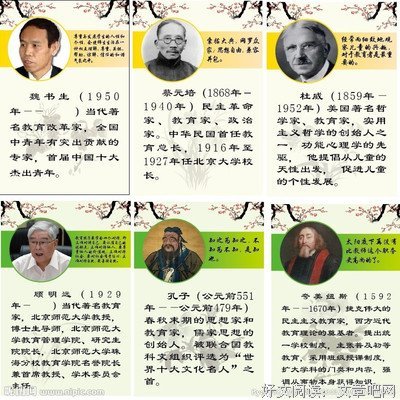 崇拓大典，网罗众
家，思想自由，兼容
并包。
经常而细致地观
察儿童的兴趣，
对于教育者是最重
要的。
魏书生（1950
年——　）当代著
名教育改革家，全国
中青年有突出贡献的
专家，首届中国十大
杰出青年。
蔡元培（1868年-
1940年）民主革命
家、教育家、政治
家。中华民国首任教
育总长，1916年至
1927年任北京大学校
长。
杜威（1859年-
1952年）美国著名哲
学家、教育家，实用
主义哲学的创始人之
一，功能心理学的先
驱，他提倡从儿童的
天性出发，促进儿童
的个性发展。
知之为知之，不
知为不知，是知
也。
太阳底下再没有
比教师这个职务
更高尚的了。
顾明远（1929
年—　）当代著名教育
家，北京师范大学教授，
博士生导师，北京师范大
学教育管理学院、研究生
院院长，北京师范大学珠
海分校教育学院名誉院长
兼首席教授、学术委员会
主任。
孔子（公元前551
年——公元前479年）
春秋末期的思想家和
教育家、儒家思想的
创始人，被联合国教
科文组织评选为“世
界十大文化名人”之
首。
夸美纽斯（1592
—1670年）捷克伟大的
民主主义教育家，西方近代
教育理论的奠基者。提出统
一学校制度，主张普及初等
教育，采用班级授课制度，
扩大学科的门类和内容，强
调从事物本身获得知识。
好文阅读：文章吧网